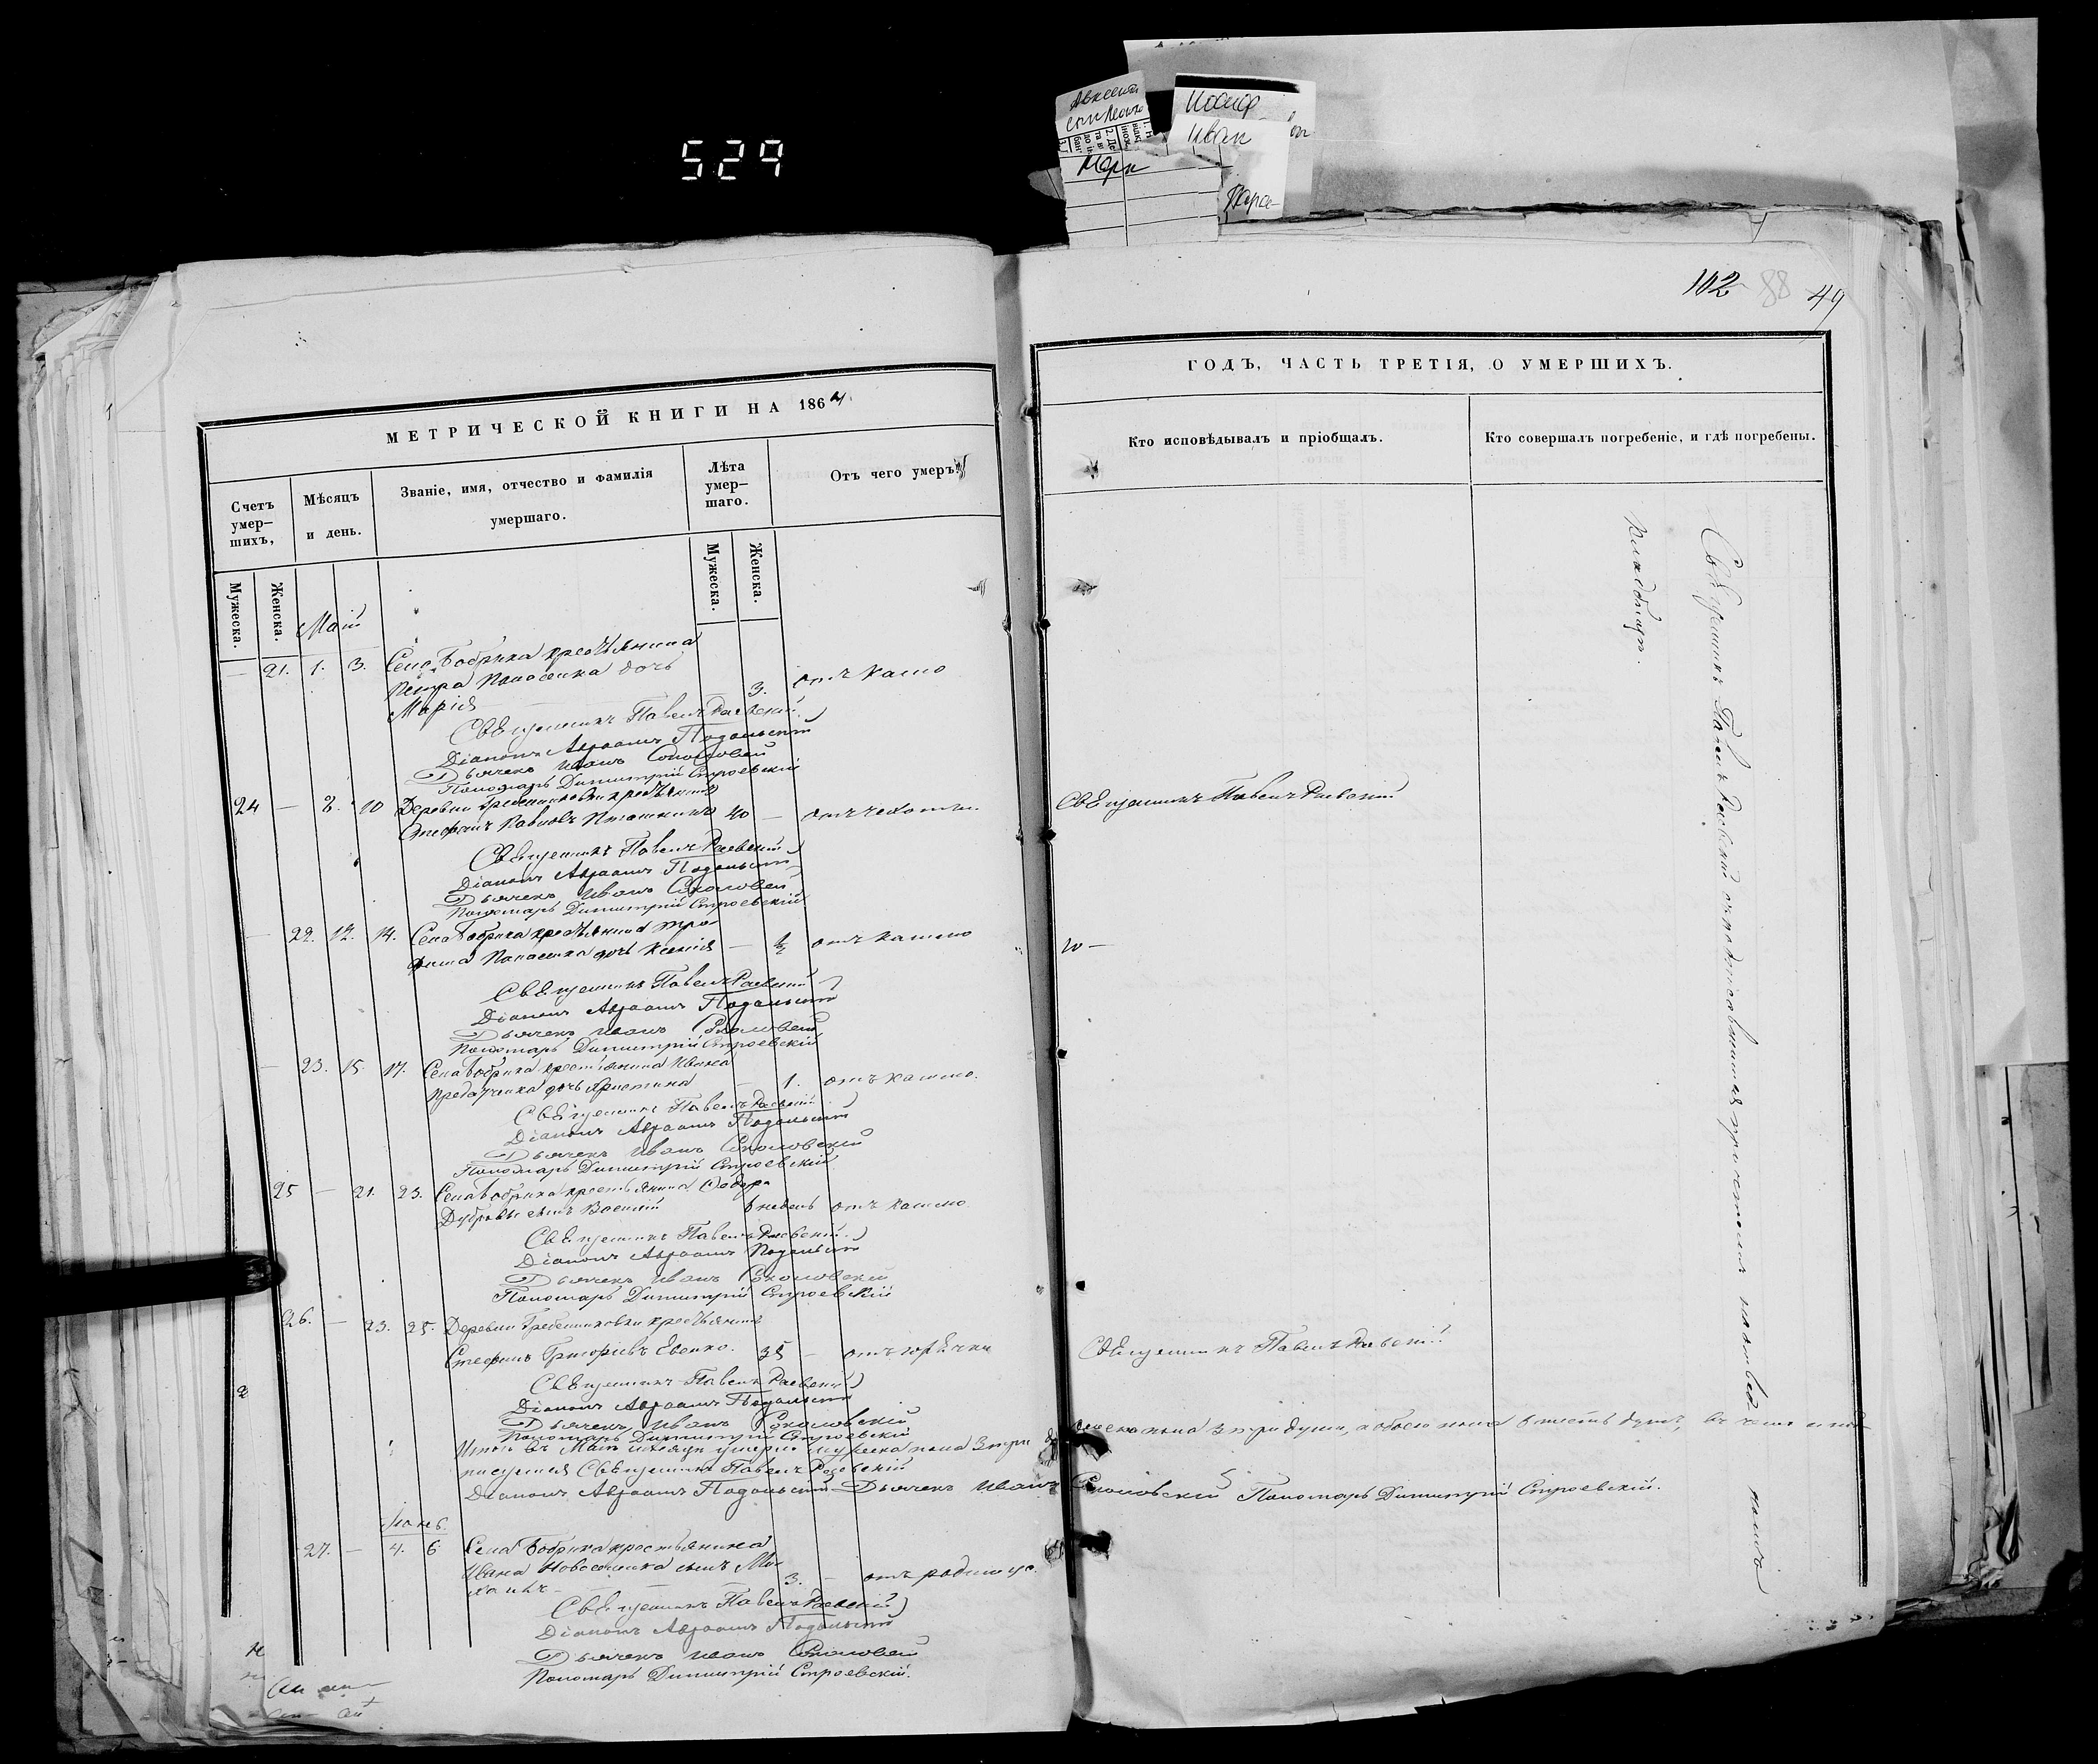 529
Иосиф
Иван
Марк
102 88 49
МЕТРИЧЕСКОЙ КНИГИ НА 1864
ГОДЪ, ЧАСТЬ ТРЕТІЯ, О УМЕРШИХЪ.
Счетъ умер-шихъ,
Мѣсяцъ и день.
Званіе, имя, отчество и фамилія умершаго.
Лѣта умер-шаго.
Отъ чего умеръ
Кто исповѣдывалъ и пріобщалъ.
Кто совершалъ погребеніе, и гдѣ погребены.
Мужеска.
Женска.
Мужеска.
Женска.
Май
— 21. 1. 3. Села Бобрика крестьянина
Петра дочь
Марія — 3. отъ кашлю
Священникъ Павелъ Раевскій
Діаконъ Авраамъ Подольскій
Дьячекъ Иванъ Соколовскій
Пономарь Димитрій Строевскій
24 — 8. 10 Деревни Гребенниковки крестьянинъ
Стефанъ 40 — отъ чахотки
Священникъ Павелъ Раевскій
Священникъ Павелъ Раевскій
Діаконъ Авраамъ Подольскій
Дьячекъ Иванъ Соколовскій
Пономарь Димитрій Строевскій
— 22. 12. 14. Села Бобрика крестьянина Тро-
фима дочь Ксенія — ½ отъ кашлю
Священникъ Павелъ Раевскій
Діаконъ Авраамъ Подольскій
Дьячекъ Иванъ Соколовскій
Пономарь Димитрій Строевскій
— 23. 15. 17. Села Бобрика крестьянина Ивана
дочь Христина — 1. отъ кашлю.
Священникъ Павелъ Раевскій
Діаконъ Авраамъ Подольскій
Дьячекъ Иванъ Соколовскій
Пономарь Димитрій Строевскій
25 — 21. 23. Села Бобрика крестьянина Ѳедора
Дубровы сынъ Василій недель отъ кашлю
Священникъ Павелъ Раевскій
Діаконъ Авраамъ Подольскій
Дьячекъ Иванъ Соколовскій
Пономарь Димитрій Строевскій
26. — 23. 25. Деревни Гребенниковки крестьянинъ
Стефанъ Григорьевъ Евенко. 35 — отъ горячки
Священникъ Павелъ Раевскій
Священникъ Павелъ Раевскій
Діаконъ Авраамъ Подольскій
Дьячекъ Иванъ Соколовскій
Пономарь Димитрій Строевскій
Итого въ Маѣ мѣсяцѣ умерло мужеска пола 3 три женска пола 3 три души, а обоего пола 6 шесть душъ, въ чемъ и под-
писуемся Священникъ Павелъ Раевскій
Діаконъ Авраамъ Подольскій Дьячекъ Иванъ Соколовскій Пономарь Димитрій Строевскій.
Іюнь
27. — 4. 6 Села Бобрика крестьянина
Ивана Новоселика сынъ Ми-
хаилъ — 3. — отъ родимца.
Священникъ Павелъ Раевскій
Діаконъ Авраамъ Подольскій
Дьячекъ Иванъ Соколовскій
Пономарь Димитрій Строевскій.
Священникъ Павелъ Раевскій